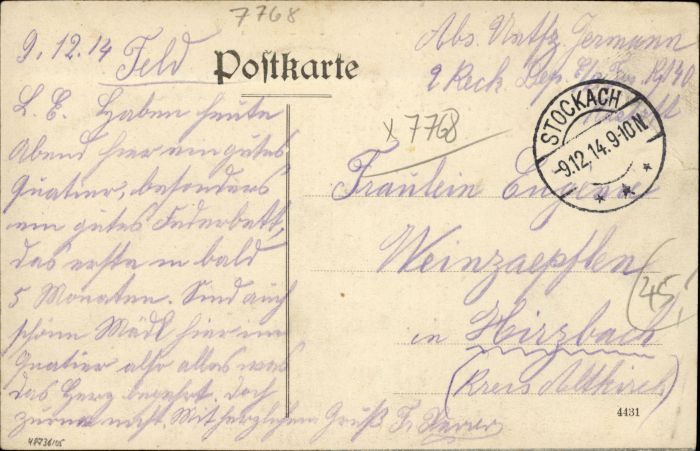 7768
9.12.14 Feld
Postkarte
Abs. Uatfz. Jermann
2 Rek. Dep. E/ Fus. Rg 40
L. E. Haben heute
Abend hier ein gutes
Quatier, besonders
ein gutes Federbett,
das erste in bald
5 Monaten. Sind auch
schöne Mädl hier im
Quatier also alles was
das Herz begehrt. Doch
zürne nicht. Mit herzlichem Gruß
x 7768
STOCKACH
9.12.14.9-10N
Fräulein Eugenie
Weinzaepflen
in Hirzbach
(Kreis Altkirch)
45,
4431